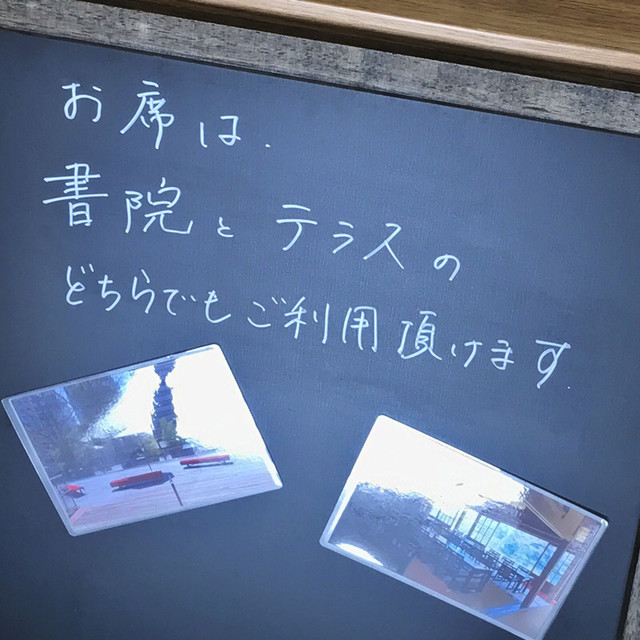 お席は、
書院とテラスの
どちらでもご利用頂けます。